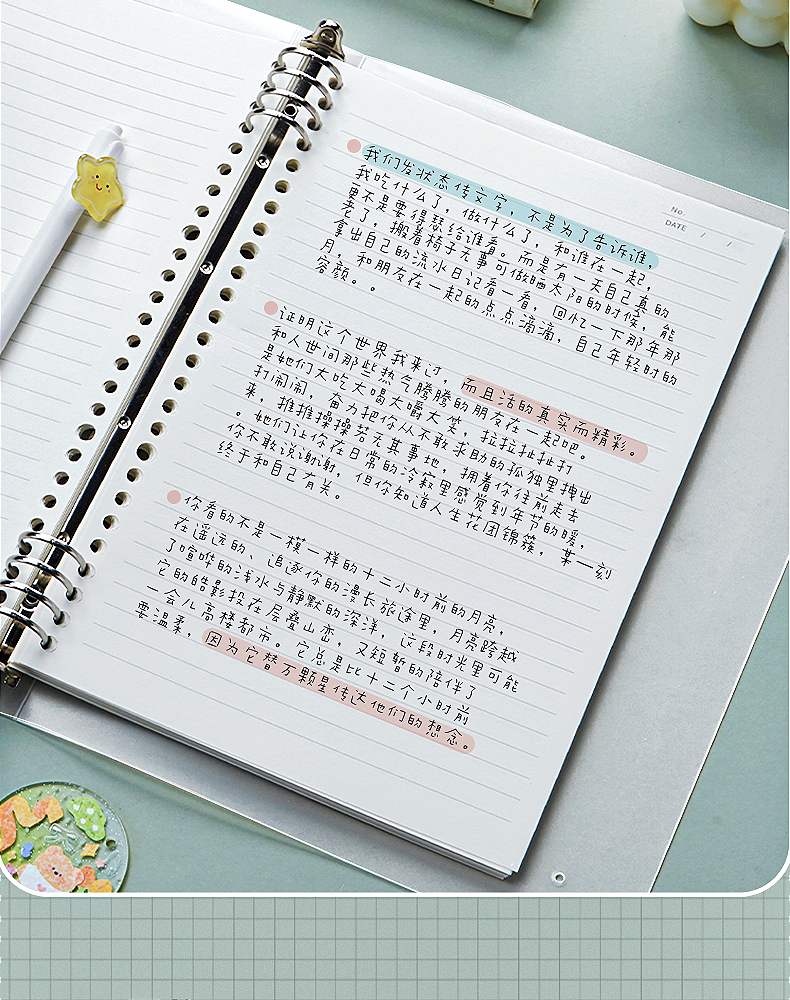 No.
DATE / /
我们发状态传文字，不是为了告诉谁，
我吃什么了，做什么了，和谁在一起，
更不是要得瑟给谁看。而是有一天自己真的
老了，搬着椅子无事可做晒太阳的时候，能
拿出自己的流水日记看一看，回忆一下那年那
月，和朋友在一起的点点滴滴，自己年轻时的
容颜。。
证明这个世界我来过，而且活的真实而精彩。
和人世间那些热气腾腾的朋友在一起吧。
是她们大吃大喝大嚼大笑，拉拉扯扯打
打闹闹，奋力把你从不敢求助的孤独里拽出
来，推推搡搡若无其事地，拥着你往前走去
。她们让你在日常的冷寂里感觉到年节的暖，
你不敢说谢谢，但你知道人生花团锦簇，某一刻
终于和自己有关。
你看的不是一模一样的十二小时前的月亮，
在遥远的、追逐你的漫长旅途里，月亮跨越
了喧哗的浅水与静默的深洋，这段时光里可能
它的皓影投在层叠山峦，又短暂的陪伴了
一会儿高楼都市。它总是比十二个小时前
要温柔，因为它替万颗星传达他们的想念。